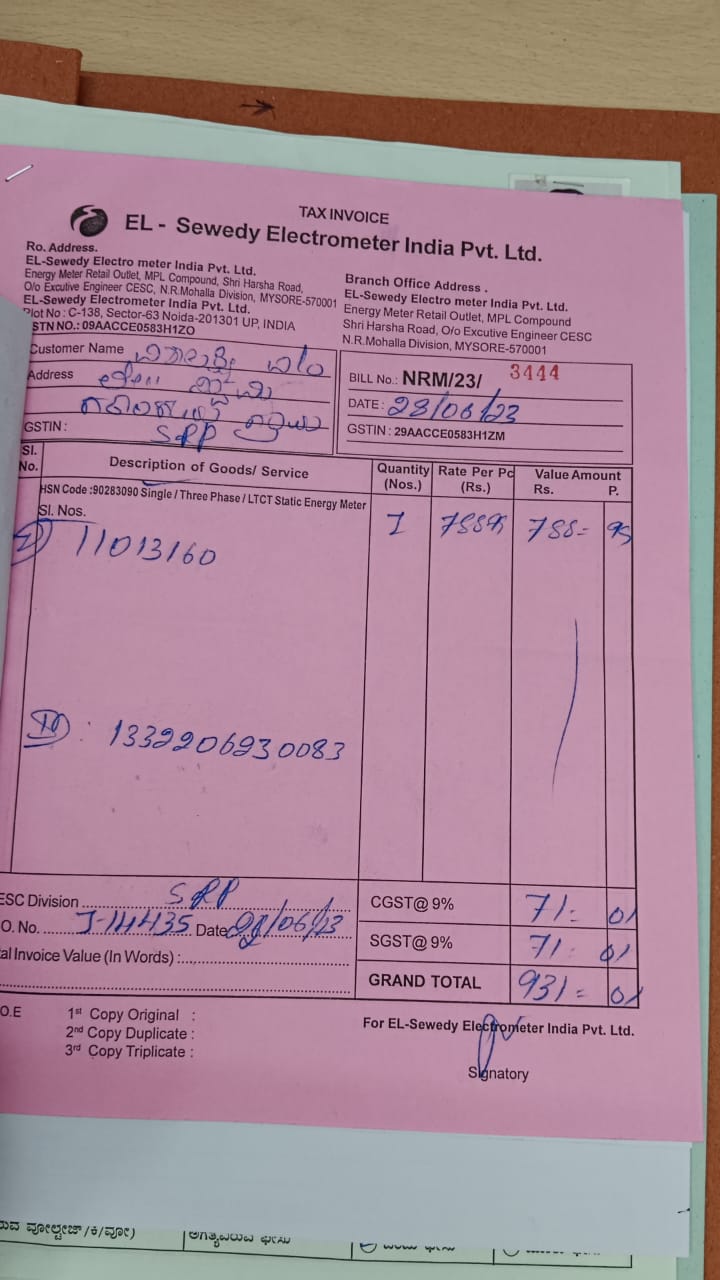 TAX INVOICE
EL - Sewedy Electrometer India Pvt. Ltd.
Ro. Address.
EL-Sewedy Electro meter India Pvt. Ltd.
Energy Meter Retail Outlet, MPL Compound, Shri Harsha Road,
O/o Excutive Engineer CESC, N.R.Mohalla Division, MYSORE-570001
EL-Sewedy Electrometer India Pvt. Ltd.
Plot No : C-138, Sector-63 Noida-201301 UP, INDIA
STN NO.: 09AACCE0583H1ZO
Branch Office Address .
EL-Sewedy Electro meter India Pvt. Ltd.
Energy Meter Retail Outlet, MPL Compound
Shri Harsha Road, O/o Excutive Engineer CESC
N.R.Mohalla Division, MYSORE-570001
Customer Name
Address
GSTIN : SRP
BILL No.: NRM/23/ 3444
DATE : 28/06/23
GSTIN : 29AACCE0583H1ZM
Sl. No. Description of Goods/ Service Quantity (Nos.) Rate Per Pc (Rs.) Value Amount Rs. P.
HSN Code :90283090 Single / Three Phase / LTCT Static Energy Meter
Sl. Nos. 1 788 95 788= 95
11013160
1332206230083
ESC Division SRP
O. No. J-14435 Date 28/06/23
al Invoice Value (In Words) :
CGST@ 9% 71= 01
SGST@ 9% 71- 01
GRAND TOTAL 931= 01
O.E 1st Copy Original :
2nd Copy Duplicate :
3rd Copy Triplicate :
For EL-Sewedy Electrometer India Pvt. Ltd.
Signatory
ವೋಲ್ಟೇಜ್/ಕಿ/ವೋ)